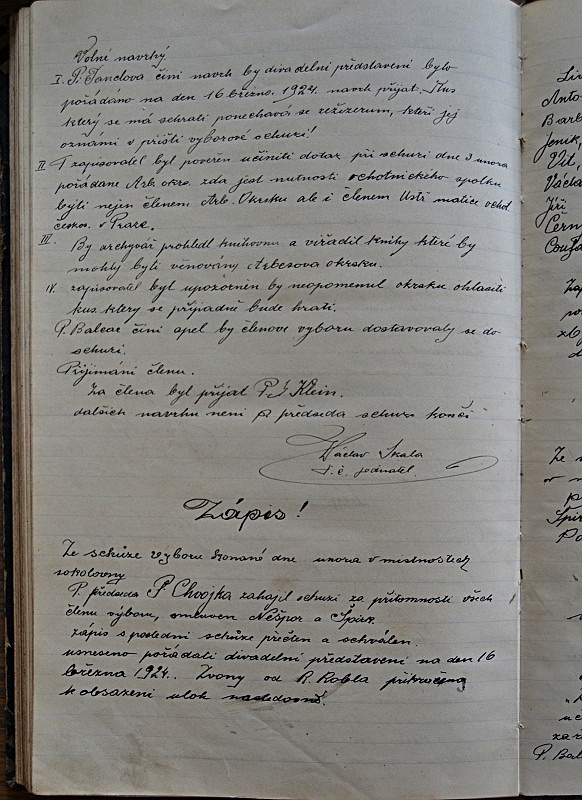 Volné navrhy
I. P. Jandova činí navrh by divadelní představení bylo
pořádáno na den 16 března. 1924. navrh přijat. Kus
který se má sehráti ponechává se režizerum, kteří jej
oznámí v příští vyborové schuzi!
II zapisovatel byl pověřen učiniti dotaz při schuzi dne 3 unora
pořádané Arb. okrs. zda jest nutností ochotnického spolku
byti nejen členem Arb. Okrsku ale i členem Ústř matice ochot
českos. v Praze.
III. By archyvář prohledl knihovnu a vyřadil knihy které by
mohly byti věnovány Arbesova okrsku.
IV. zapisovatel byl upozorněn by neopomenul okrsku ohlasiti
kus který se případně bude hrati.
P. Balcar činí apel by členové vyboru dostavovaly se do
schuzí.
Přijímání členu.
Za člena byl přijat P. J Klein.
dalších navrhu není p předseda schuzi končí
Václav Skala
t. č. jednatel.
Zápis!
Ze schůze vyboru konané dne unora v místnostech
sokolovny
P. předseda P Chvojka zahajil schuzi za přítomnosti všech
členu výboru, omluven Nešpor a Špier.
zápis s poslední schůze přečten a schválen.
usneseno pořádati divadelní představení na den 16
března 1924. Zvony od R. Robla
k obsazení uloh
Lir
Anto
Barb
Jeník,
Vít,
Václa
Jiří
Čern
P. Bal